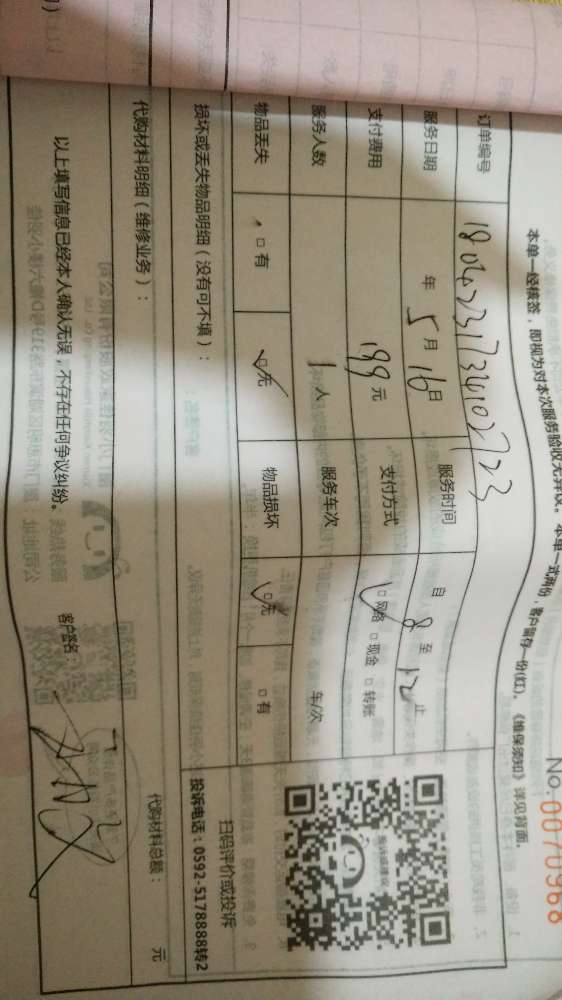 No. 0070968
本单一经核签，即视为对本次服务验收无异议。本单一式两份，客户留存一份(红)，《维保须知》详见背面。
订单编号
服务日期 年 5月16日 服务时间 自 8 至 12 止
支付费用 199元 支付方式 ☑网络 □现金 □转账
服务人数 1人 服务车次 车/次
物品丢失 □有 ☑无 物品损坏 ☑无 □有
损坏或丢失物品明细（没有可不填）：
扫码评价或投诉
投诉电话：0592-5178888转2
代购材料明细（维修业务）：
代购材料总额： 元
以上填写信息已经本人确认无误，不存在任何争议纠纷。 客户签名：